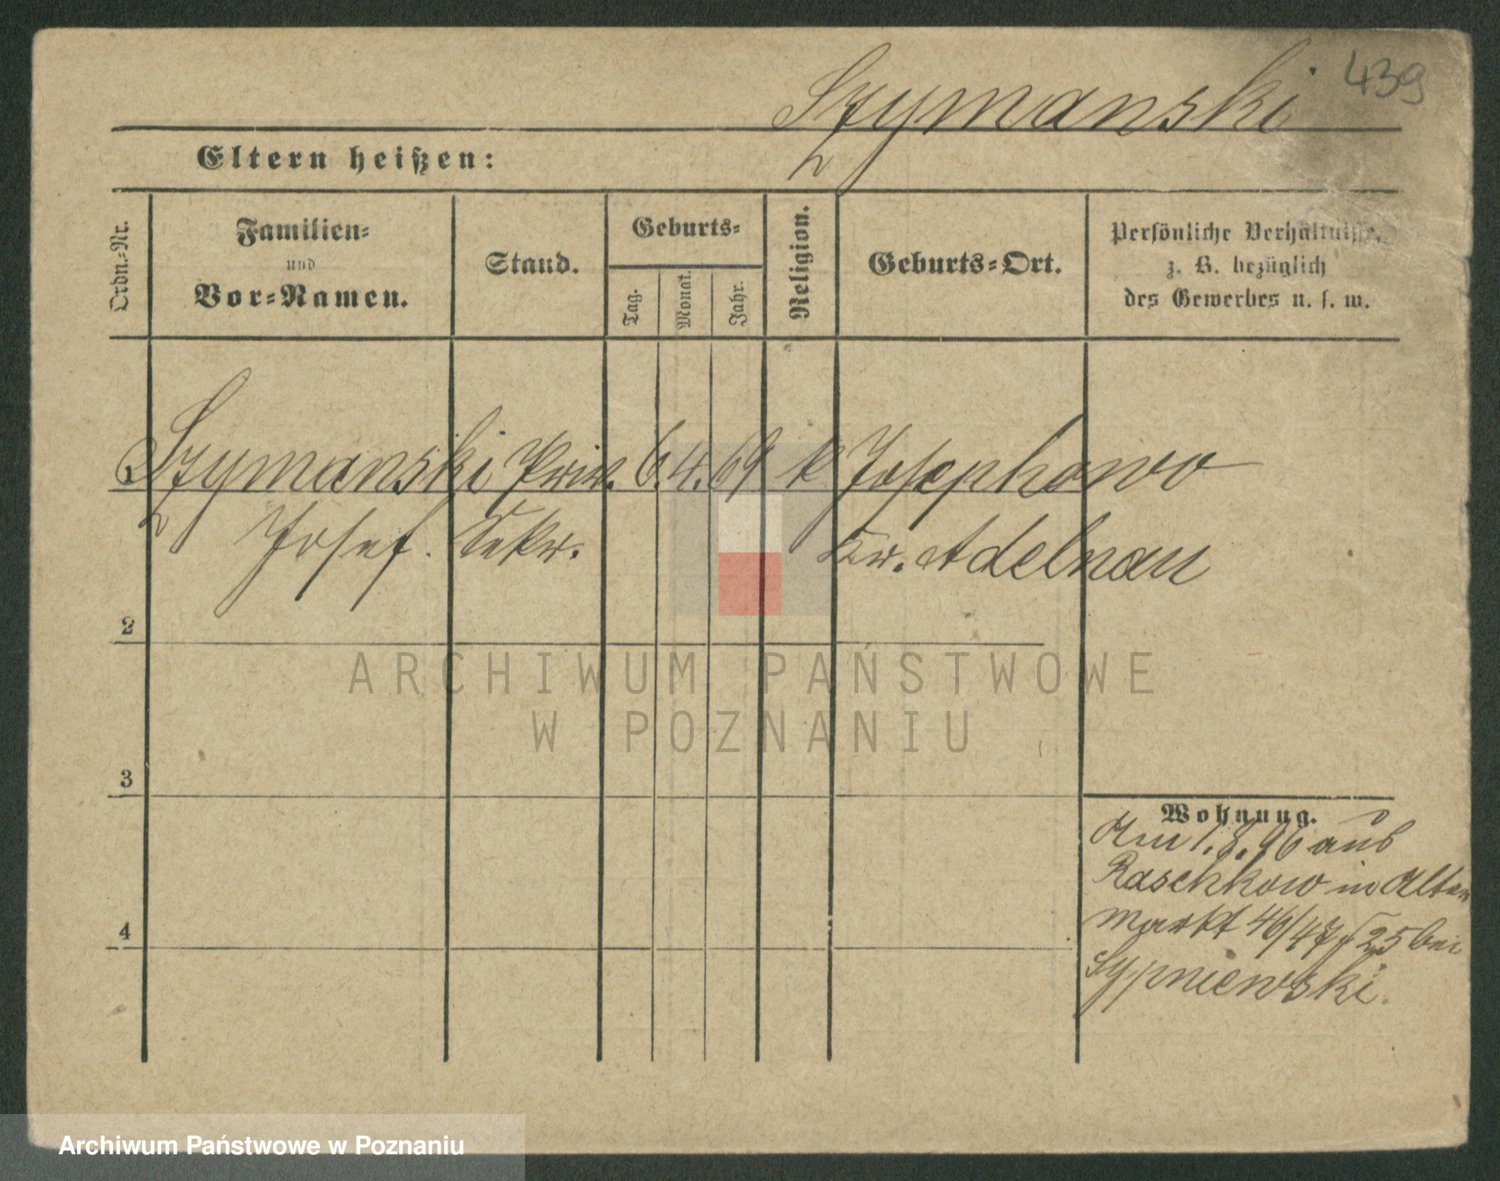 Szymanski 439
Eltern heißen:
Ordn.-Nr.
Familien-
und
Vor-Namen.
Stand.
Geburts-
Tag.
Monat.
Jahr.
Religion.
Geburts-Ort.
Persönliche Verhältnisse,
z. B. bezüglich
des Gewerbes u. s. w.
Szymanski Priv. 6. 4. 69 k Josephowo
Josef. Sekr. Kr. Adelnau
2
3
4
Wohnung.
Am 1. 8. 96 aus
Raschkow in Alten
Markt 46/47, 25 bei
Sypniewski.
ARCHIWUM PAŃSTWOWE
W POZNANIU
Archiwum Państwowe w Poznaniu